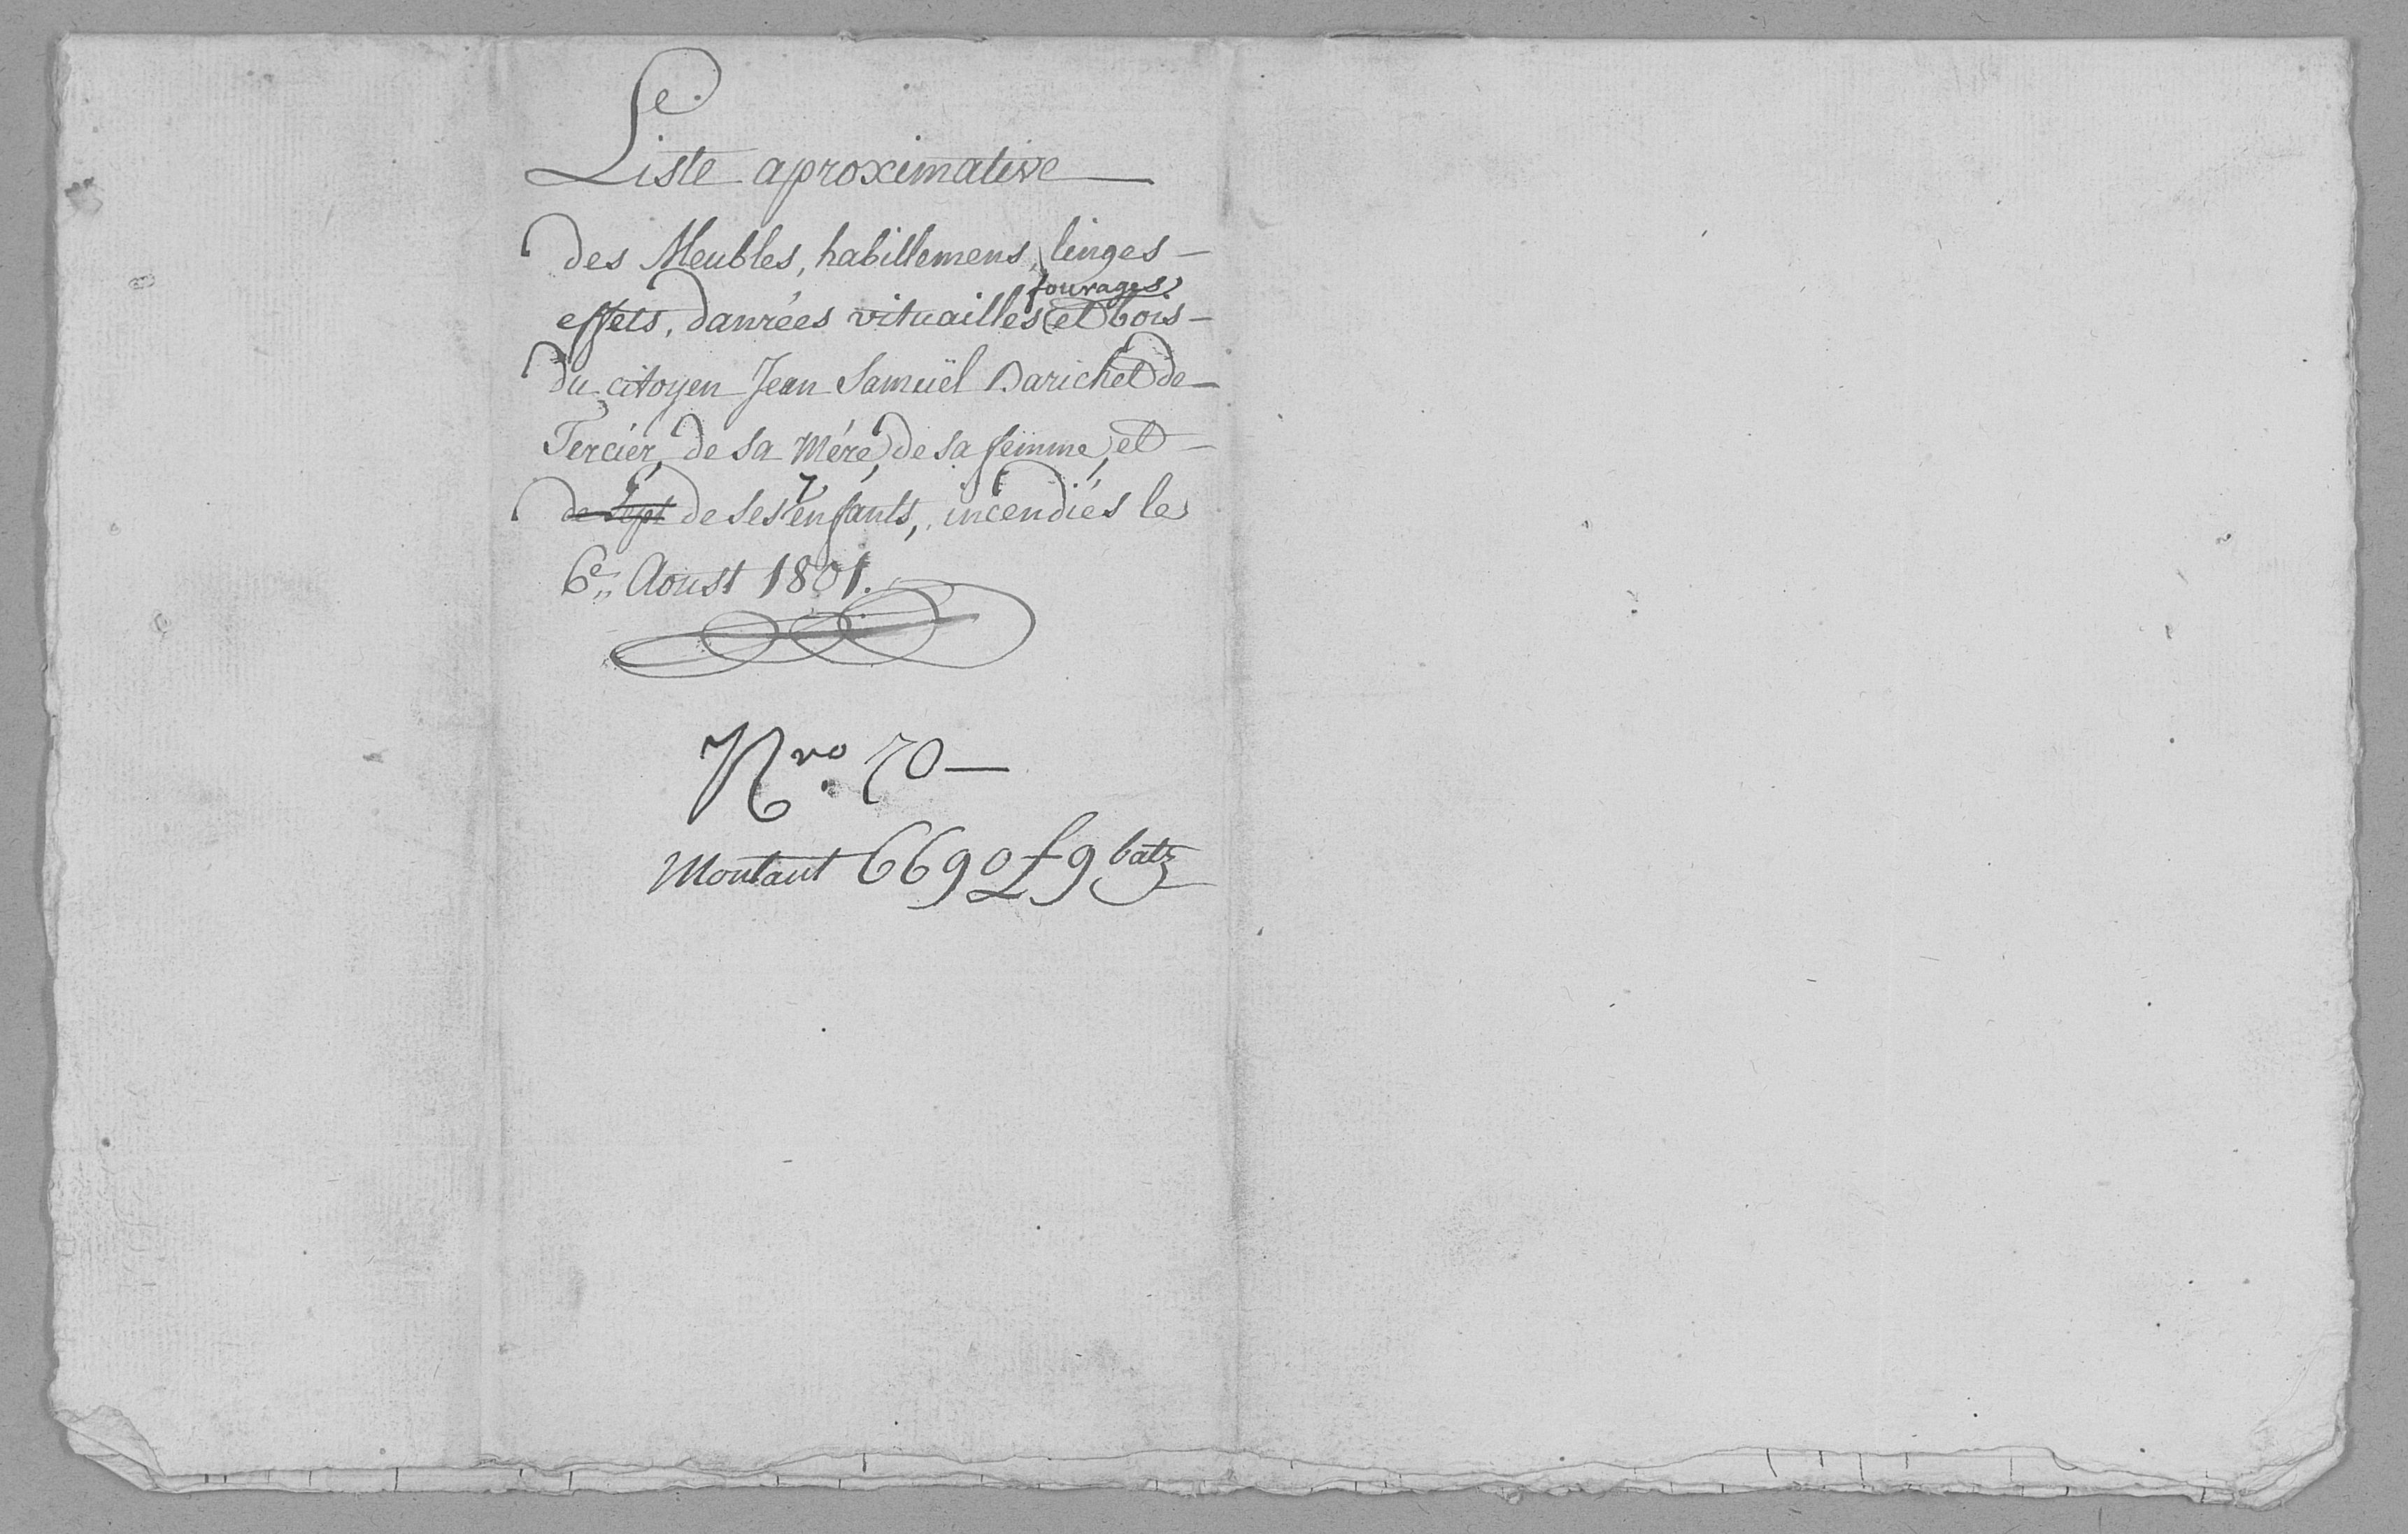 Liste aproximative
des Meubles, habillemens, linges
fourages
effets, danrées vituailles et bois
du citoyen Jean Samuël Barichet de
Tercier, de sa Mére, de sa femme, et
de sept de ses 7 enfants, incendiés le
6e Aoust 1801.
Nro. 70
Montant 6690 f 9 batz